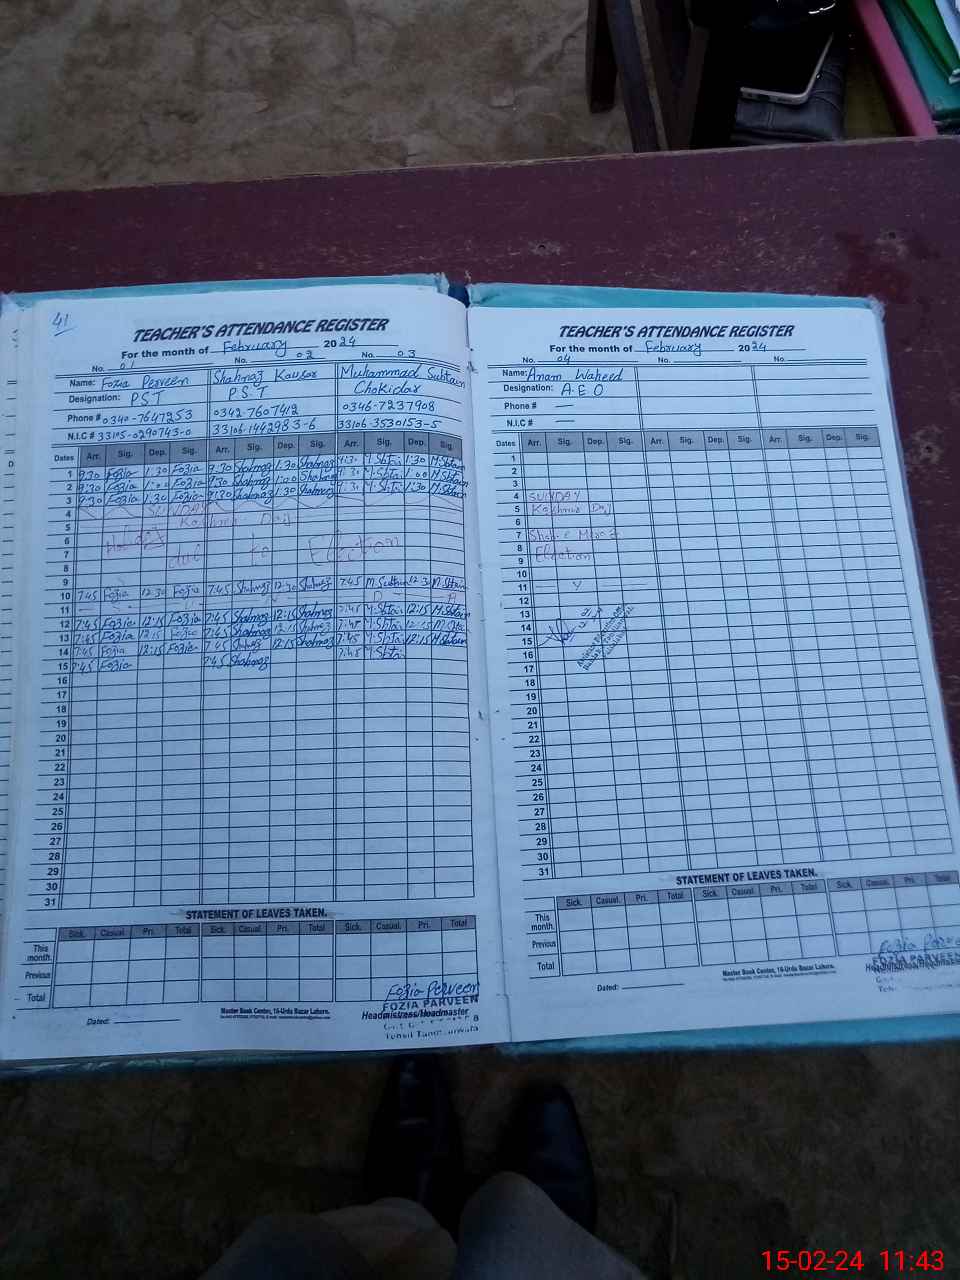 41
TEACHER'S ATTENDANCE REGISTER
For the month of February 2024
No. 01 No. 02 No. 03
Name: Fozia Perveen Shahnaz Kausar Muhammad Subtain
Designation: PST P.S.T Chokidar
Phone # 0340-7647253 0342-7607412 0346-7237908
N.I.C # 33105-0290743-0 33106-1442983-6 33106-3530153-5
Dates Arr. Sig. Dep. Sig. Arr. Sig. Dep. Sig. Arr. Sig. Dep. Sig.
1 9:30 Fozia 1:30 Fozia 9:30 Shahnaz 1:30 Shahnaz 9:30 1:30
2 9:30 Fozia 1:00 Fozia 9:30 Shahnaz 1:00 Shahnaz 9:30 1:00
3 9:30 Fozia 1:30 Fozia 9:30 Shahnaz 1:30 Shahnaz 9:30 1:30
4 SUNDAY
5 Kashmir Day
6 Holiday
7 due to Election
8
9
10 7:45 Fozia 12:30 Fozia 7:45 Shahnaz 12:30 Shahnaz 7:45 12:30
11
12 7:45 Fozia 12:15 Fozia 7:45 Shahnaz 12:15 Shahnaz 7:45 12:15
13 7:45 Fozia 12:15 Fozia 7:45 Shahnaz 12:15 Shahnaz 7:45 12:15
14 7:45 Fozia 12:15 Fozia 7:45 Shahnaz 12:15 Shahnaz 7:45 12:15
15 7:45 Fozia 7:45 Shahnaz 7:45
16
17
18
19
20
21
22
23
24
25
26
27
28
29
30
31
STATEMENT OF LEAVES TAKEN.
Sick. Casual. Pri. Total Sick. Casual. Pri. Total Sick. Casual. Pri. Total
This month.
Previous
Total
Fozia Perveen
FOZIA PARVEEN
Headmistress/Headmaster
Dated:
Master Book Center, 16-Urdu Bazar Lahore.
TEACHER'S ATTENDANCE REGISTER
For the month of February 2024
No. 04 No. No.
Name: Anam Waheed
Designation: A.E.O
Phone # —
N.I.C # —
Dates Arr. Sig. Dep. Sig. Arr. Sig. Dep. Sig. Arr. Sig. Dep. Sig.
1
2
3
4 SUNDAY
5 Kashmir Day
6
7
8 Election
9
10
11
12
13
14
15
16
17
18
19
20
21
22
23
24
25
26
27
28
29
30
31
STATEMENT OF LEAVES TAKEN.
Sick. Casual. Pri. Total Sick. Casual. Pri. Total Sick. Casual. Pri. Total
This month.
Previous
Total
Fozia
FOZIA PARVEEN
Headmistress/Headmaster
Dated:
Master Book Center, 16-Urdu Bazar Lahore.
15-02-24 11:43